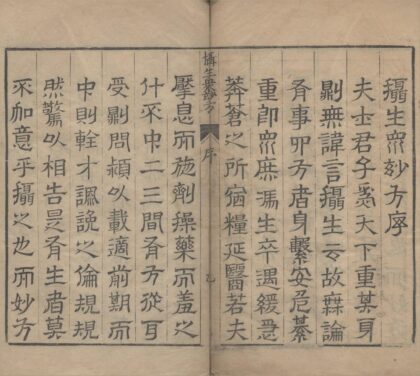 攝生眾妙方序
夫士君子為天下重其身
則無諱言攝生云故毋論
有事方者身繫安危綦
重即眾庶馮生卒遇緩急
莽蒼之所宿糧延醫若夫
攝生眾妙方
序
息而施劑操藥而羞之
什不中二三間有方從耳
受則問以載適前期而
中則輇才諷說之倫規規
然驚以相告是有生者莫
不加意乎攝之也而妙方